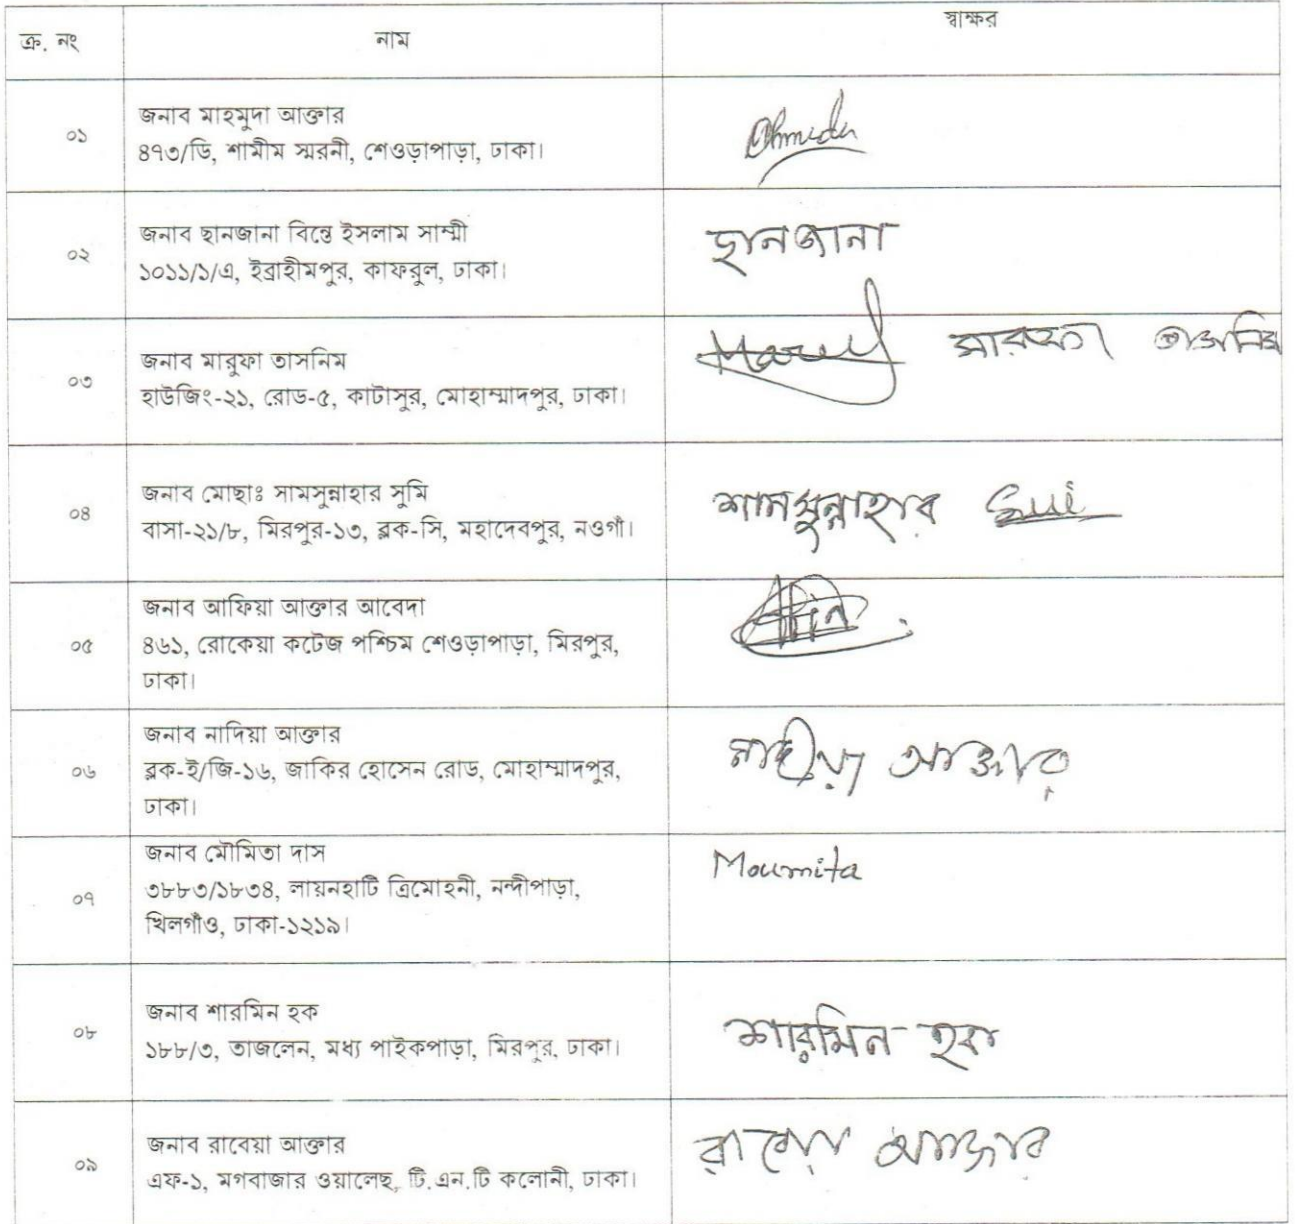 ক্র. নং নাম স্বাক্ষর
০১
জনাব মাহমুদা আক্তার
৪৭৩/ডি, শামীম স্মরনী, শেওড়াপাড়া, ঢাকা।
০২
জনাব ছানজানা বিন্তে ইসলাম সাম্মী
১০১১/১/এ, ইব্রাহীমপুর, কাফরুল, ঢাকা।
ছানজানা
০৩
জনাব মারুফা তাসনিম
হাউজিং-২১, রোড-৫, কাটাসুর, মোহাম্মাদপুর, ঢাকা।
মারুফা তাসনিম
০৪
জনাব মোছাঃ সামসুন্নাহার সুমি
বাসা-২১/৮, মিরপুর-১৩, ব্লক-সি, মহাদেবপুর, নওগাঁ।
শামসুন্নাহার
০৫
জনাব আফিয়া আক্তার আবেদা
৪৬১, রোকেয়া কটেজ পশ্চিম শেওড়াপাড়া, মিরপুর,
ঢাকা।
০৬
জনাব নাদিয়া আক্তার
ব্লক-ই/জি-১৬, জাকির হোসেন রোড, মোহাম্মাদপুর,
ঢাকা।
নাদীয়া আক্তার
০৭
জনাব মৌমিতা দাস
৩৮৮৩/১৮৩৪, লায়নহাটি ত্রিমোহনী, নন্দীপাড়া,
খিলগাঁও, ঢাকা-১২১৯।
Moumita
০৮
জনাব শারমিন হক
১৮৮/৩, তাজলেন, মধ্য পাইকপাড়া, মিরপুর, ঢাকা।
শারমিন হক
০৯
জনাব রাবেয়া আক্তার
এফ-১, মগবাজার ওয়ালেছ, টি.এন.টি কলোনী, ঢাকা।
রাবেয়া আক্তার